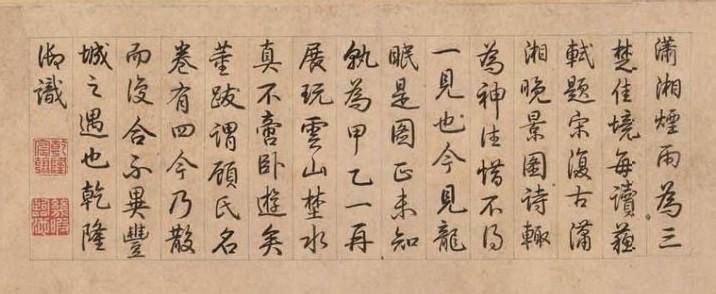 瀟湘煙雨為三
楚佳境每讀蘓
軾題宋復古瀟
湘晚景圖詩輙
為神往惜不得
一見也今見龍
眠是圖正未知
孰為甲乙一再
展玩雲山楚水
真不啻臥遊矣
董跋謂顧氏名
卷有四今乃散
而復合不異豐
城之遇也乾隆
御識
乾隆宸翰